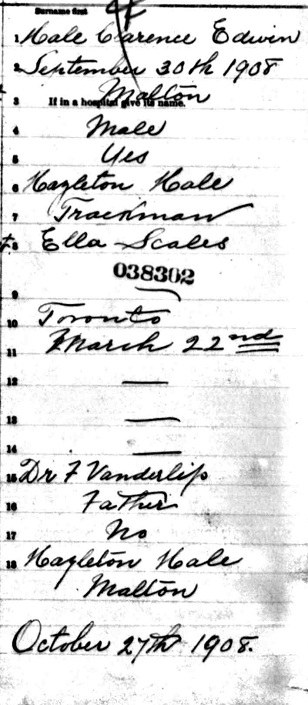 Surname first
4
1 Hale Clarence Edwin
2 September 30th 1908
Malton
3 If in a hospital give its name.
4 Male
5 Yes
6 Hazleton Hale
7 Trackman
8 Ella Scales
038302
9 —
10 Toronto
11 March 22nd
12 —
13 —
14 —
15 Dr F Vanderlip
16 Father
17 No
18 Hazleton Hale
Malton
October 27th 1908.